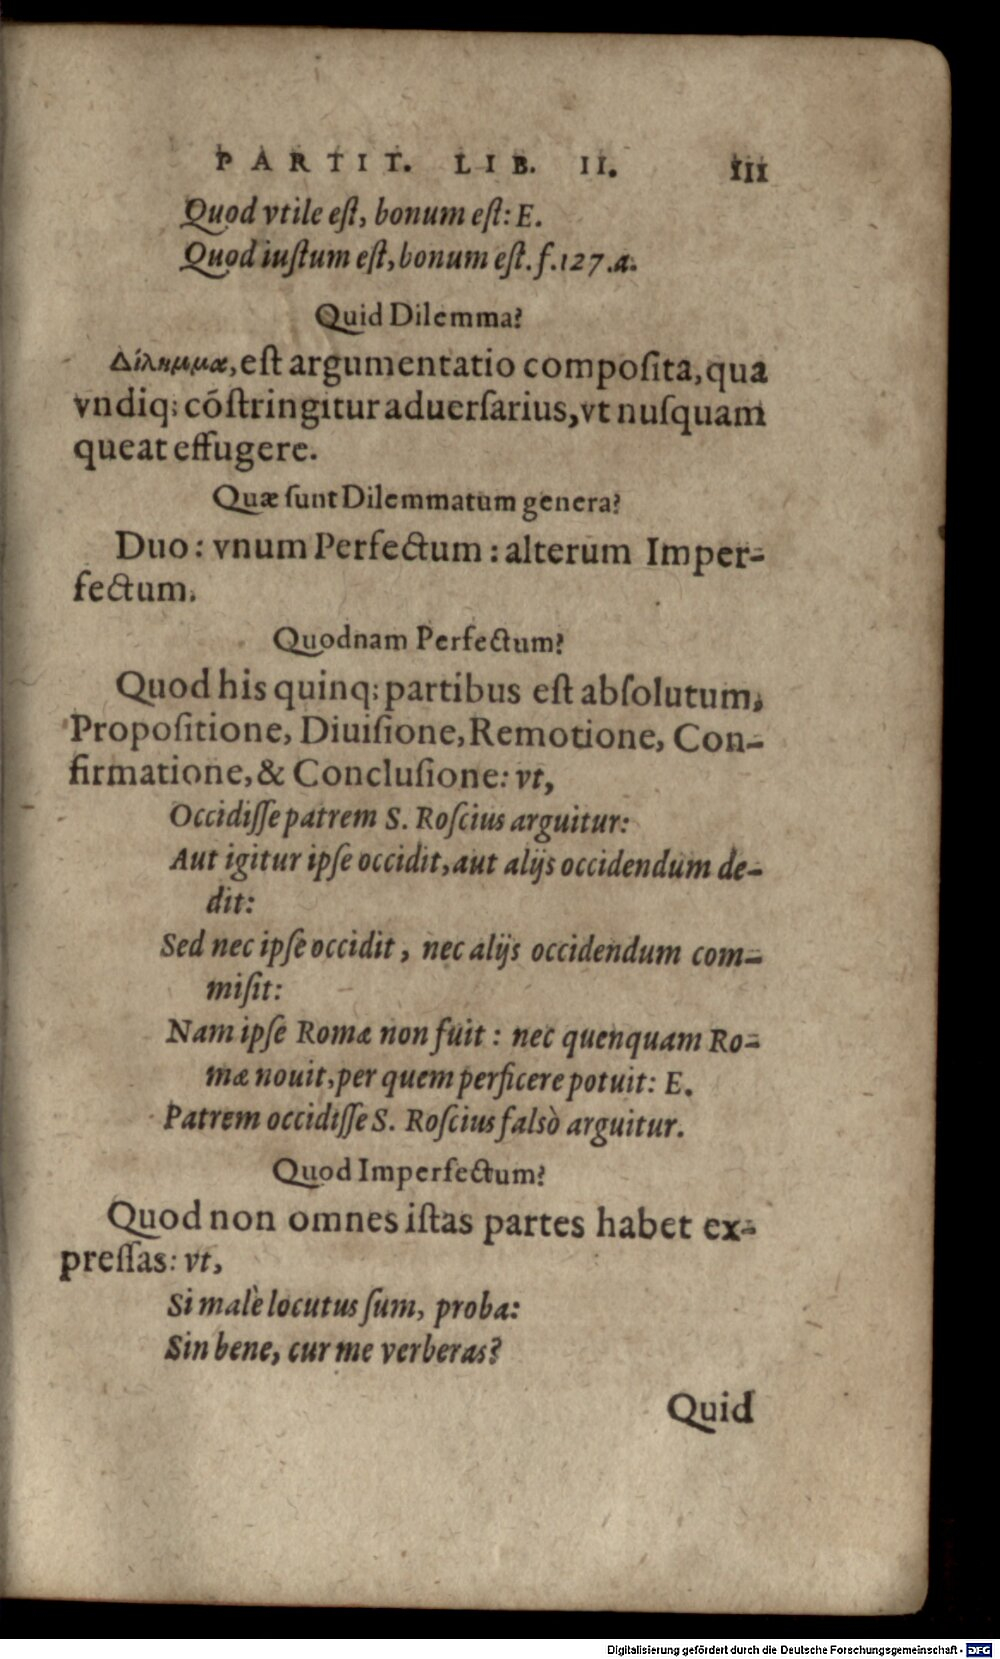 PARTIT. LIB. II. 111
Quod vtile eſt, bonum eſt: E.
Quod iuſtum eſt, bonum eſt. f. 127. a.
Quid Dilemma?
Δίλημμα, eſt argumentatio compoſita, qua
vndiq; cōſtringitur aduerſarius, vt nuſquam
queat effugere.
Quæ ſunt Dilemmatum genera?
Duo: vnum Perfectum: alterum Imper-
fectum.
Quodnam Perfectum?
Quod his quinq; partibus eſt abſolutum,
Propoſitione, Diuiſione, Remotione, Con-
firmatione, & Concluſione: vt,
Occidiſſe patrem S. Roſcius arguitur:
Aut igitur ipſe occidit, aut alijs occidendum de-
dit:
Sed nec ipſe occidit, nec alijs occidendum com-
miſit:
Nam ipſe Romæ non fuit: nec quenquam Ro-
mæ nouit, per quem perficere potuit: E.
Patrem occidiſſe S. Roſcius falsò arguitur.
Quod Imperfectum?
Quod non omnes iſtas partes habet ex-
preſſas: vt,
Si malè locutus ſum, proba:
Sin bene, cur me verberas?
Quid
Digitalisierung gefördert durch die Deutsche Forschungsgemeinschaft - DFG